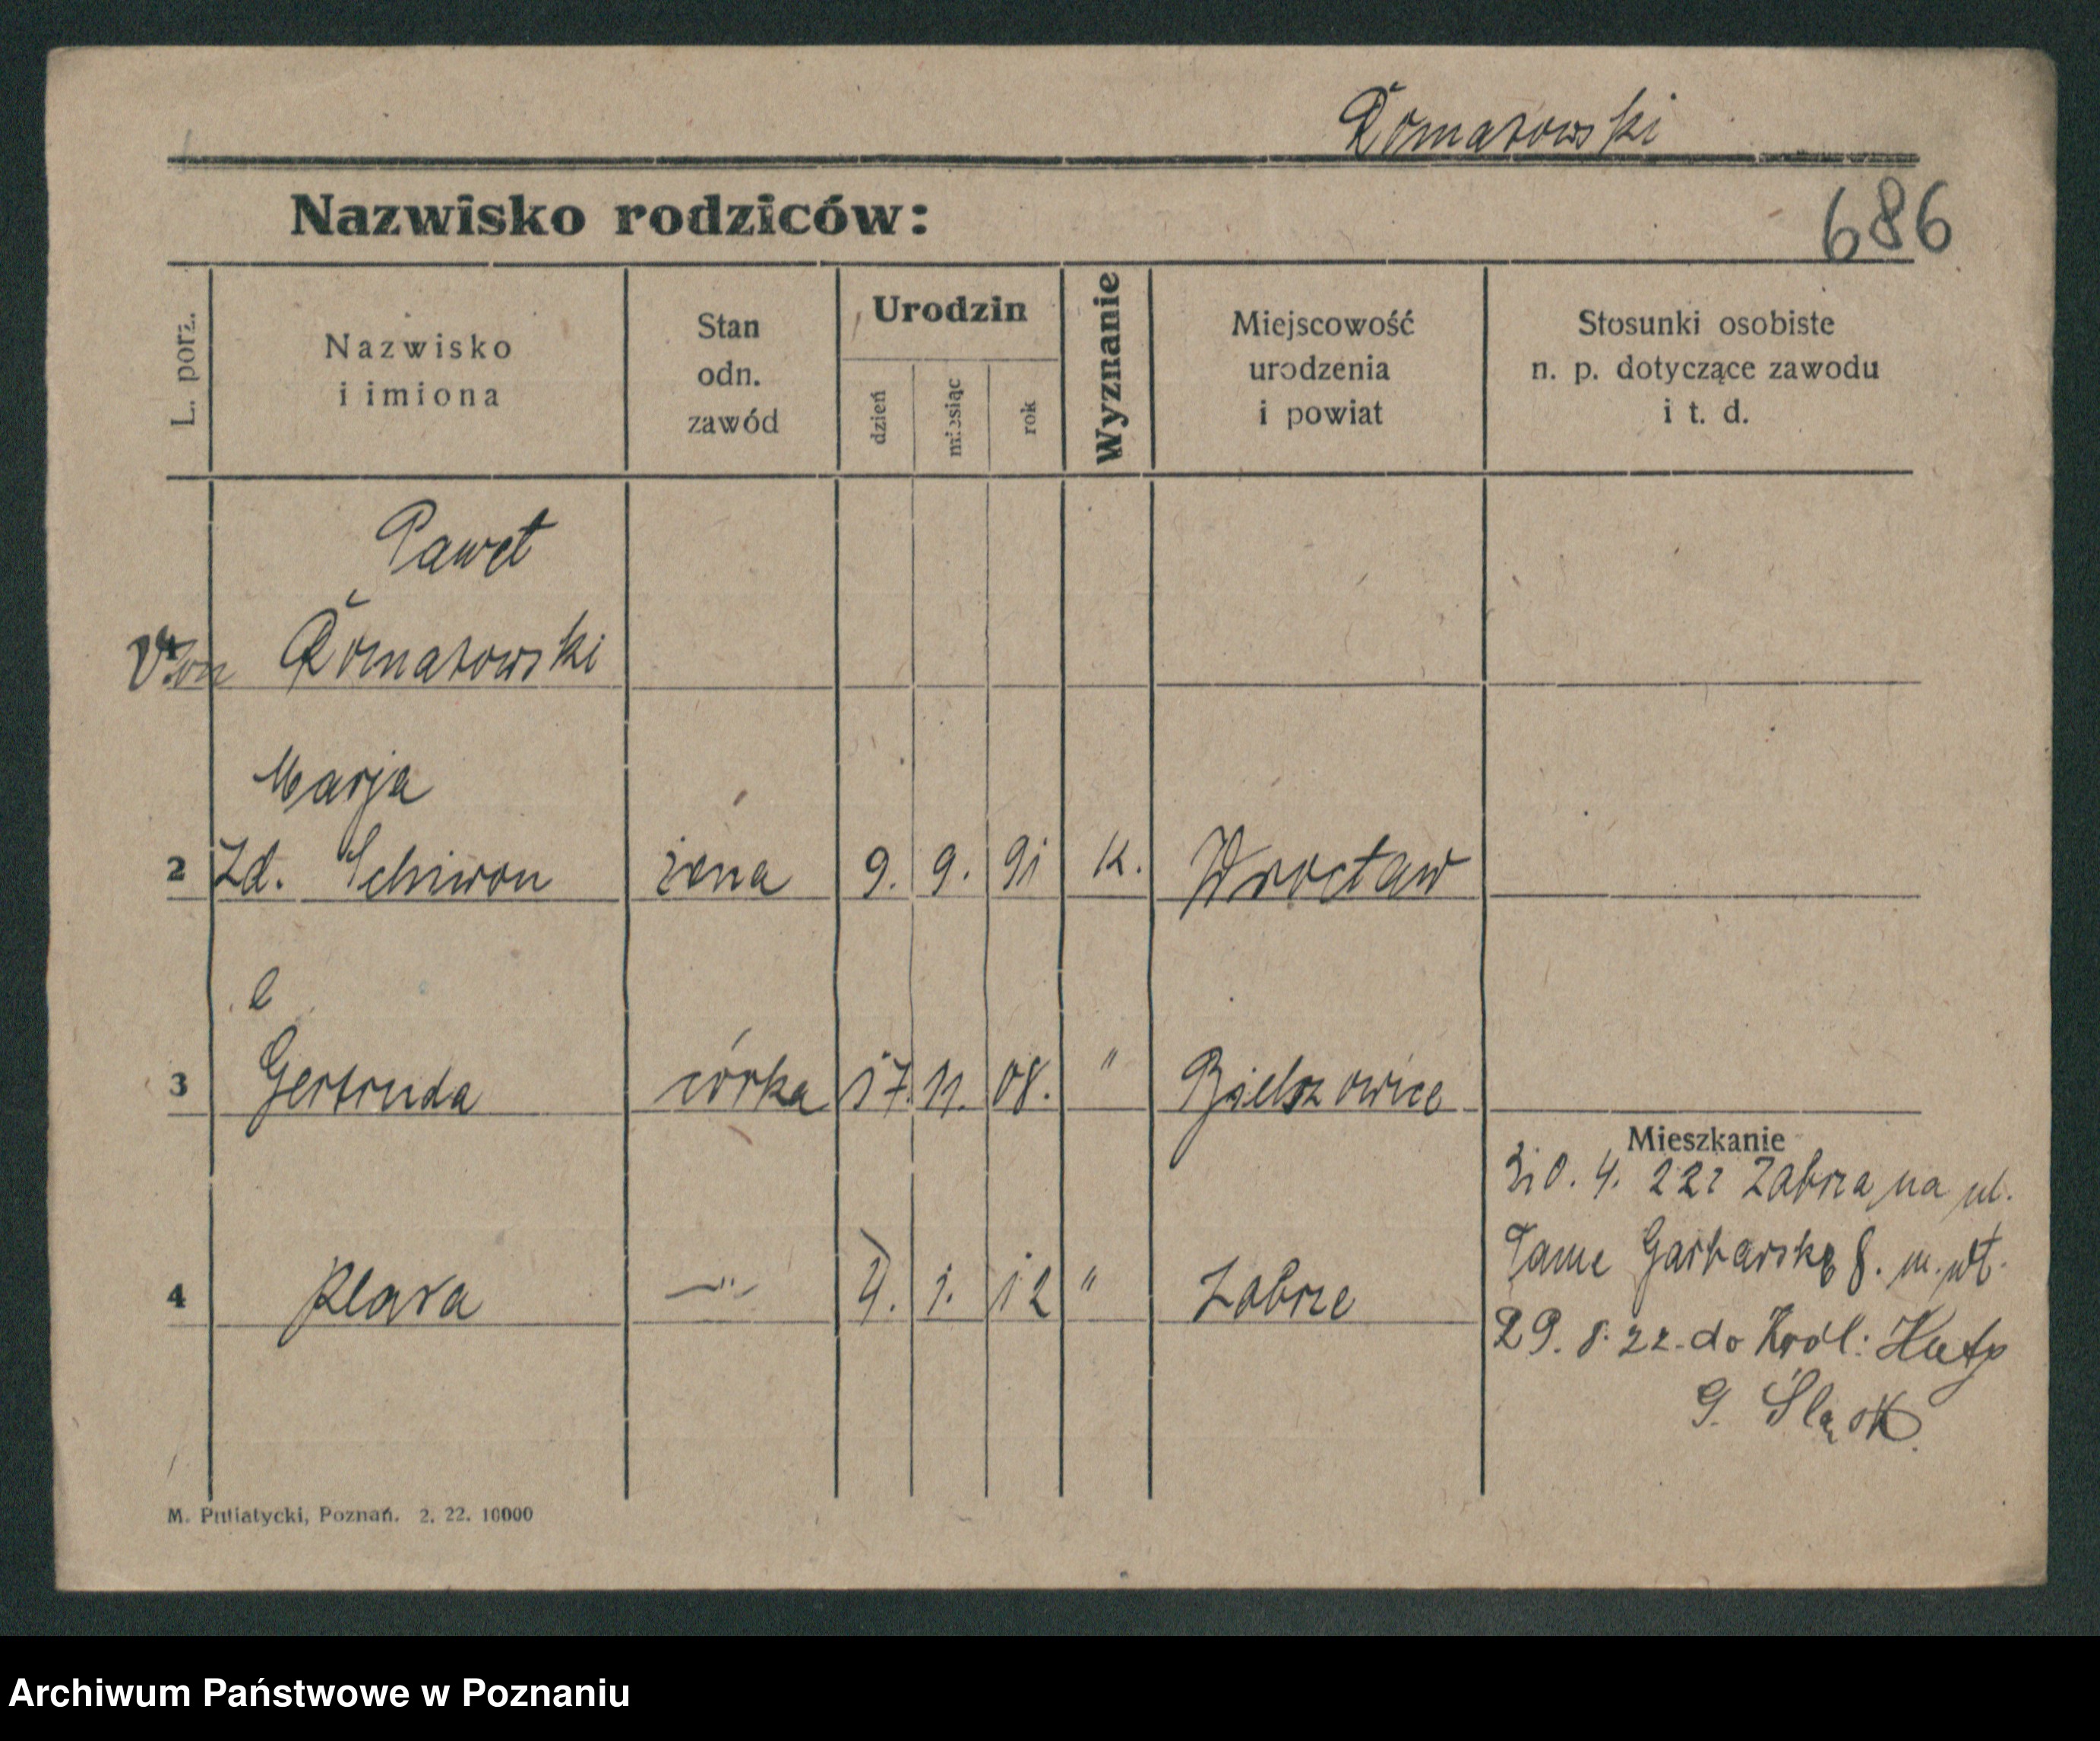 Łomarowski
Nazwisko rodziców:
686
L. porz.
Nazwisko
i imiona
Stan
odn.
zawód
Urodzin
dzień
miesiąc
rok
Wyznanie
Miejscowość
urodzenia
i powiat
Stosunki osobiste
n. p. dotyczące zawodu
i t. d.
Paweł
Łomarowski
Marja
2 Zd. Schiwon żona 9. 9. 91 k. Wrocław
e
3 Gertruda córka 17. 11. 08. " Bielszowice
Mieszkanie
4 Klara —"— 4. 1. 12 " Zabrze
4. 22 z Zabrza na ul.
Tame Garbarskę 8.
29. 8. 22. do Król. Huty
G. Śląsk.
M. Putiatycki, Poznań. 2. 22. 10000
Archiwum Państwowe w Poznaniu